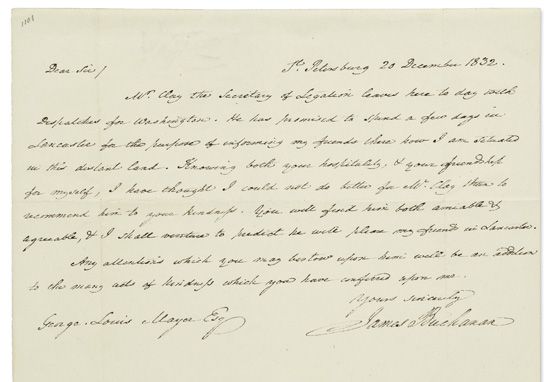 1101
Dear Sir/
St. Petersburg 20 December 1832.
Mr. Clay the Secretary of Legation leaves here to day with
Despatches for Washington. He has promised to spend a few days in
Lancaster for the purpose of informing my friends there how I am situated
in this distant land. Knowing both your hospitality, & your friendship
for myself, I have thought I could not do better for Mr. Clay than to
recommend him to your kindness. You will find him both amiable &
agreeable, & I shall venture to predict he will please my friends in Lancaster.
Any attentions which you may bestow upon him will be an addition
to the many acts of kindness which you have conferred upon me.
Yours sincerely
James Buchanan
George Louis Mayer Esq